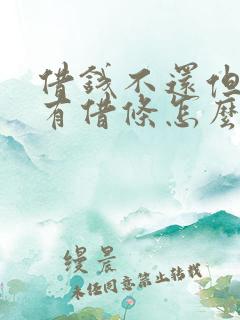 借钱不还但
有借条怎么
缦晨
未经同意禁止转载